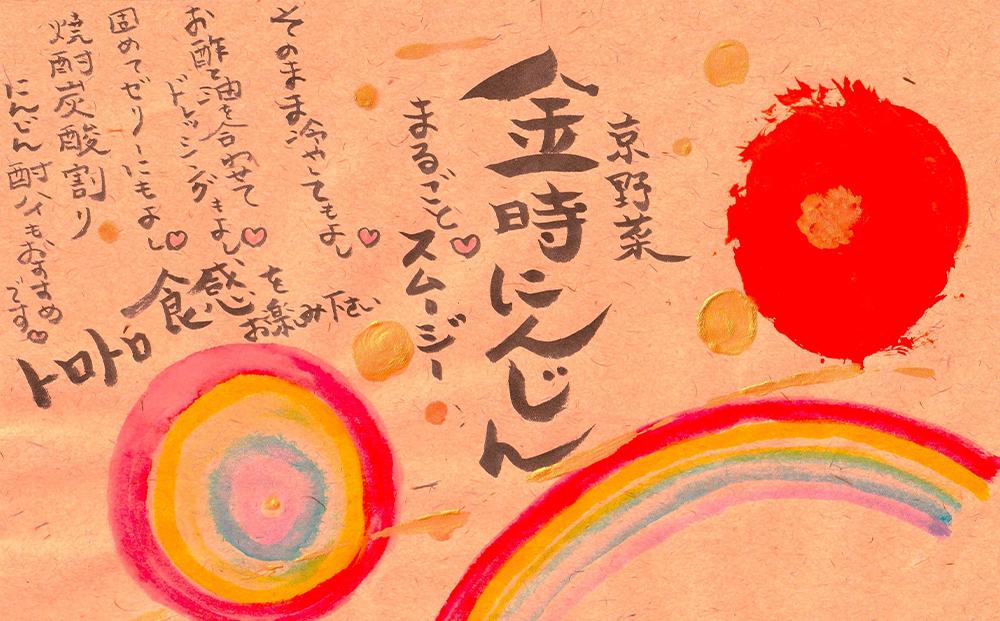 京野菜
金時にんじん
まるごと
スムージー
そのまま冷やしてもよし
お酢と油を合わせて
ドレッシングもよし
固めてゼリーにもよし
焼酎炭酸割り
にんじん酎ハイもおすすめ
です
食感を
お楽しみ下さい
トマト